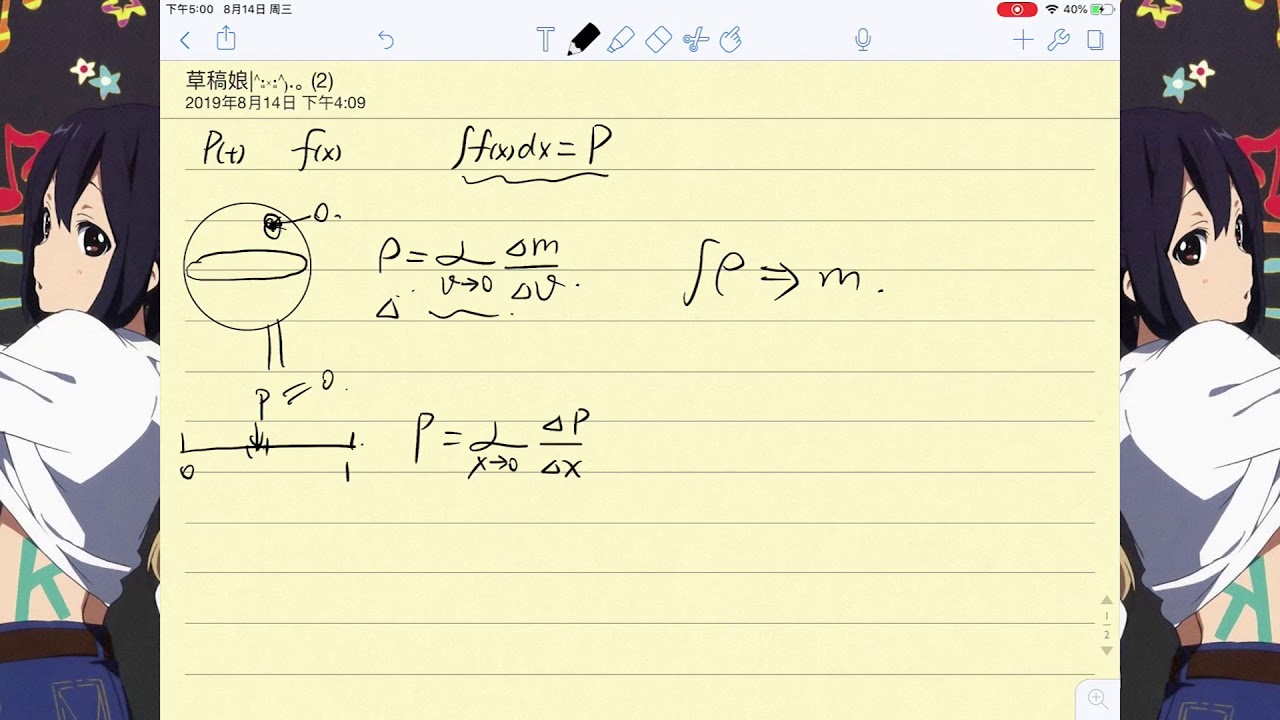 下午5:00 8月14日 周三 40%
草稿娘|^:×:^).。 (2)
2019年8月14日 下午4:09
P(t) f(x) ∫f(x)dx = P
0.
ρ = lim v→0 Δm/Δv. ∫ρ ⇒ m.
Δ
P = 0.
0 1
P = lim x→0 ΔP/Δx
1
2
K K